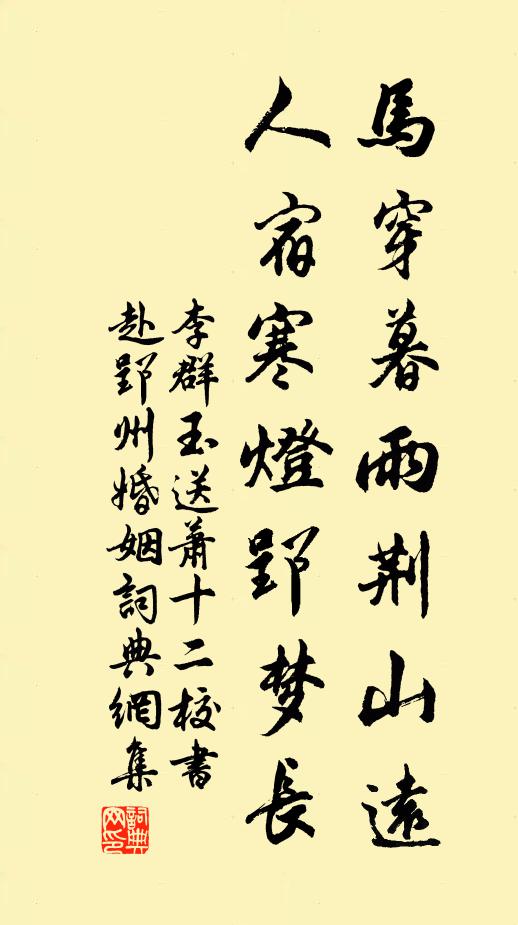 馬穿暮雨荆山遠
人宿寒燈郢梦長
李群玉送蕭十二校書
赴郢州婚姻詞典網集
詞典
网印